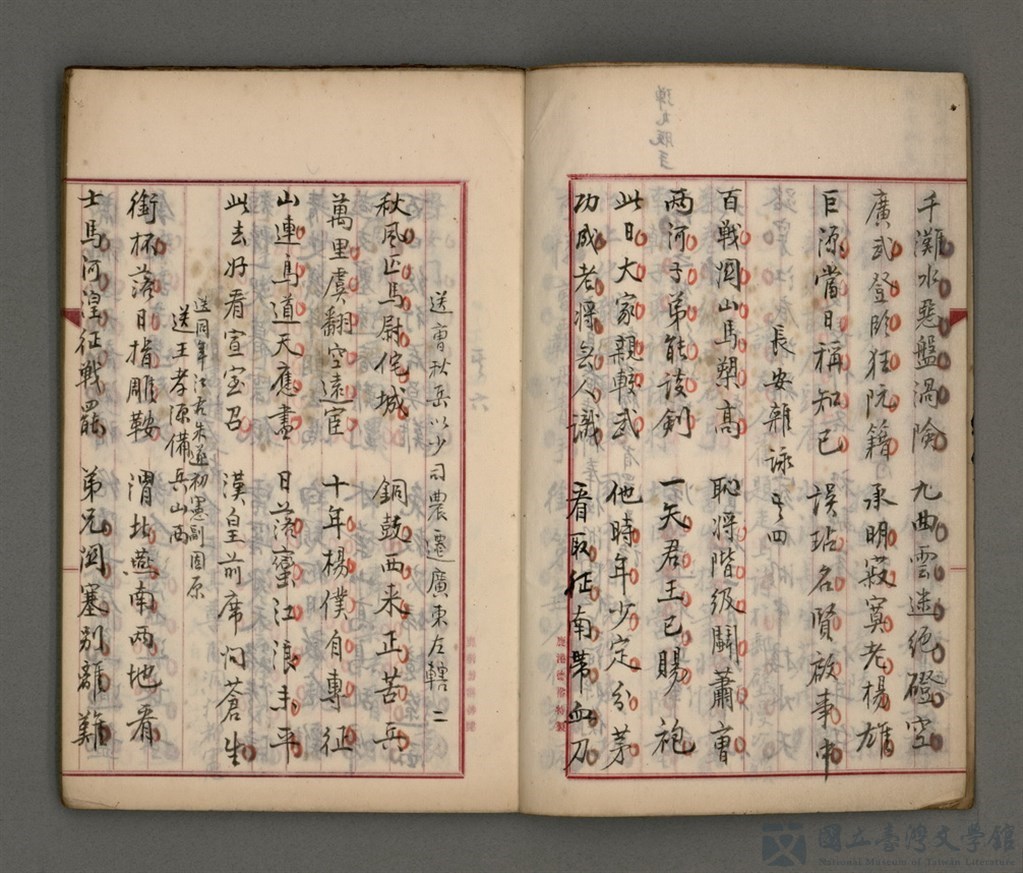 千灘水惡盤渦險 九曲雲迷絕磴空
廣武登臨狂阮籍 承明寂寞老楊雄
巨源當日稱知己 誤玷名賢啟事中
長安雜詠之四
百戰關山馬槊高 恥將階級鬬蕭曹
兩河子弟能談劍 一矢君王已賜袍
此日大家親較武 他時年少定分茅
功成老將無人識 看取征南帶血刀
送曹秋岳以少司農遷廣東左轄 二
秋風匹馬尉佗城 銅鼓西来正苦兵
萬里虞翻空遠宦 十年楊僕自專征
山連鳥道天應盡 日落蠻江浪未平
此去好看宣室召 漢皇前席问蒼生
送同年江右朱遂初憲副固原
送王孝源備兵山西
銜杯落日指雕鞍 渭北燕南兩地看
士馬河湟征戰罷 弟兄關塞別離難
國立臺灣文學館
National Museum of Taiwan Literature